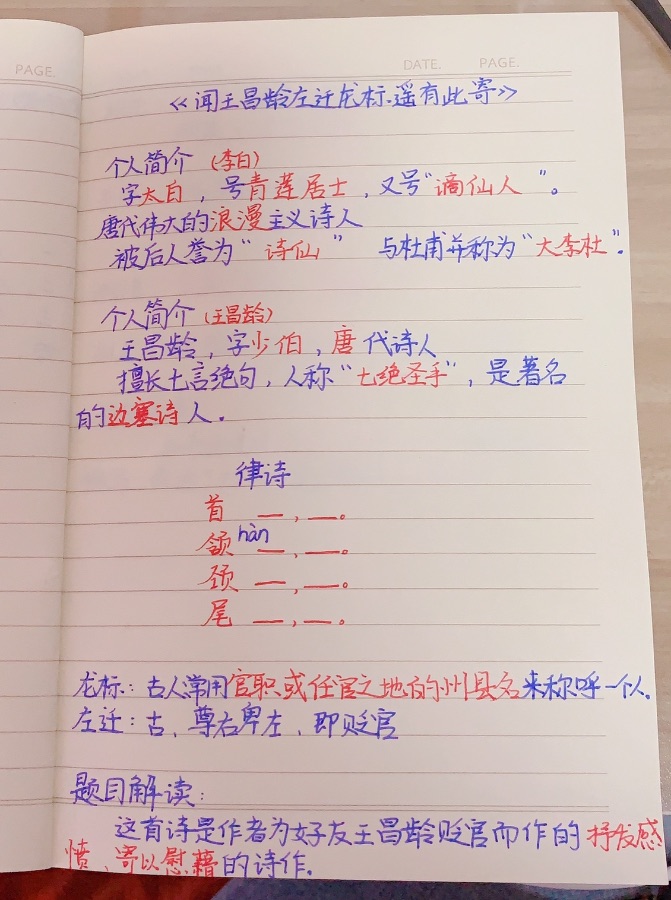 PAGE.
DATE. PAGE.
《闻王昌龄左迁龙标遥有此寄》
个人简介(李白)
字太白，号青莲居士，又号"谪仙人"。
唐代伟大的浪漫主义诗人
被后人誉为"诗仙" 与杜甫并称为"大李杜"。
个人简介(王昌龄)
王昌龄，字少伯，唐代诗人
擅长七言绝句，人称"七绝圣手"，是著名
的边塞诗人。
律诗
首 一，一。
颔 hàn 一，一。
颈 一，一。
尾 一，一。
龙标：古人常用官职或任官之地的州县名来称呼一个人。
左迁：古、尊右卑左，即贬官
题目解读：
这首诗是作者为好友王昌龄贬官而作的抒发感
愤、寄以慰藉的诗作.